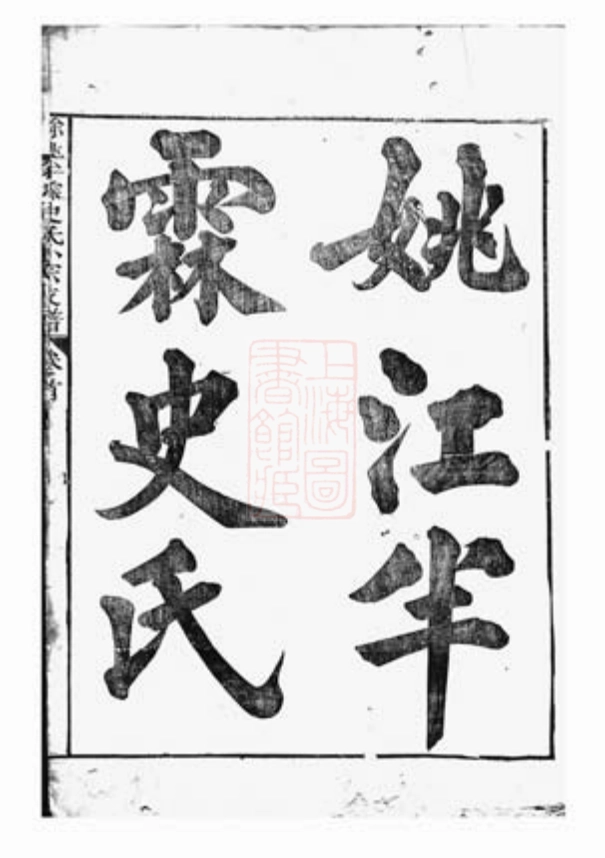 姚江半
霖史氏
餘姚半霖史氏小宗支譜 卷首
上海圖
書館藏